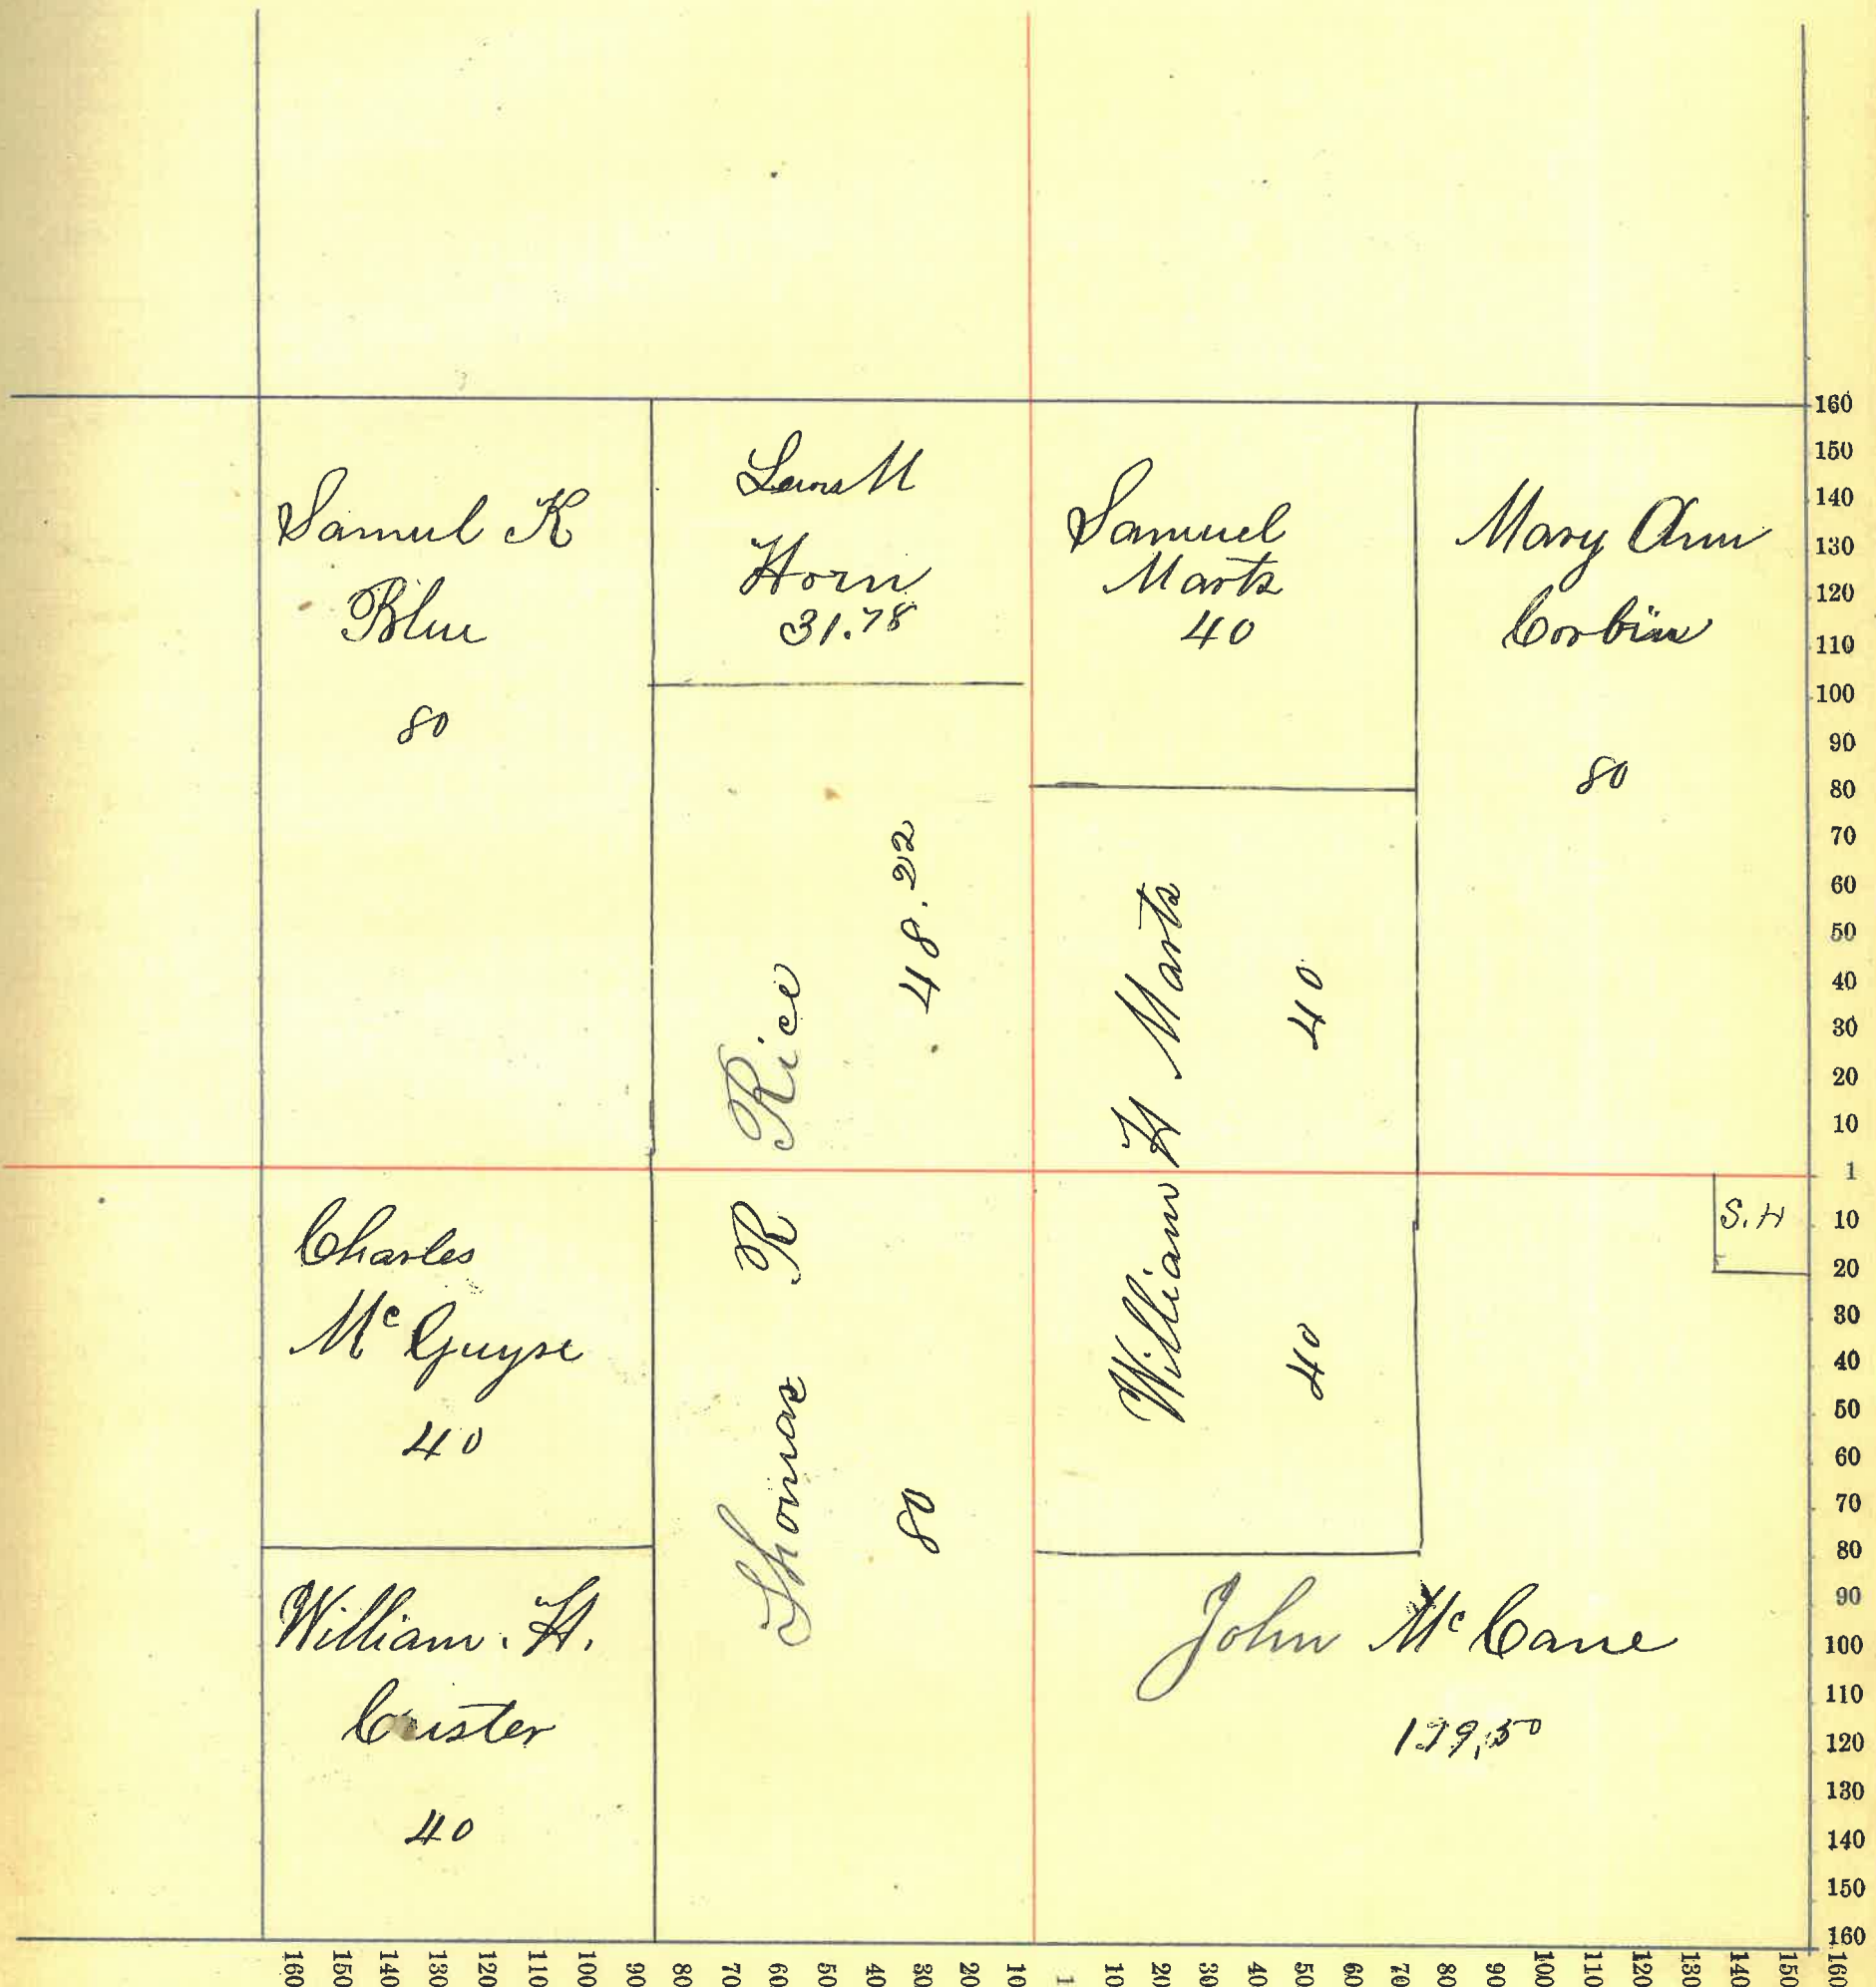 Samul K
Blue
80
Lewis M
Horn
31.78
Samuel
Martz
40
Mary Ann
Corbin
80
Thomas R Rice
48.22
80
William H Martz
40
40
Charles
Mc Guyre
40
William. H.
40
John McCane
S.H
160
150
140
130
120
110
100
90
80
70
60
50
40
30
20
10
1
10
20
30
40
50
60
70
80
90
100
110
120
130
140
150
160
160 150 140 130 120 110 100 90 80 70 60 50 40 30 20 10 1 10 20 30 40 50 60 70 80 90 100 110 120 130 140 150 160